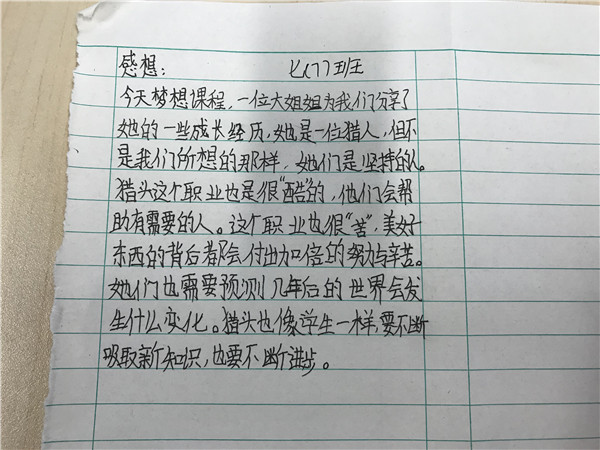 感想： 七(7)班
今天梦想课程，一位大姐姐为我们分享了
她的一些成长经历，她是一位猎人，但不
是我们所想的那样，她们是坚持的人。
猎头这个职业也是很“酷”的，他们会帮
助有需要的人。这个职业也很“苦”，美好
东西的背后都会付出加倍的努力与辛苦。
她们也需要预测几年后的世界会发
生什么变化。猎头也像学生一样，要不断
吸取新知识，也要不断进步。